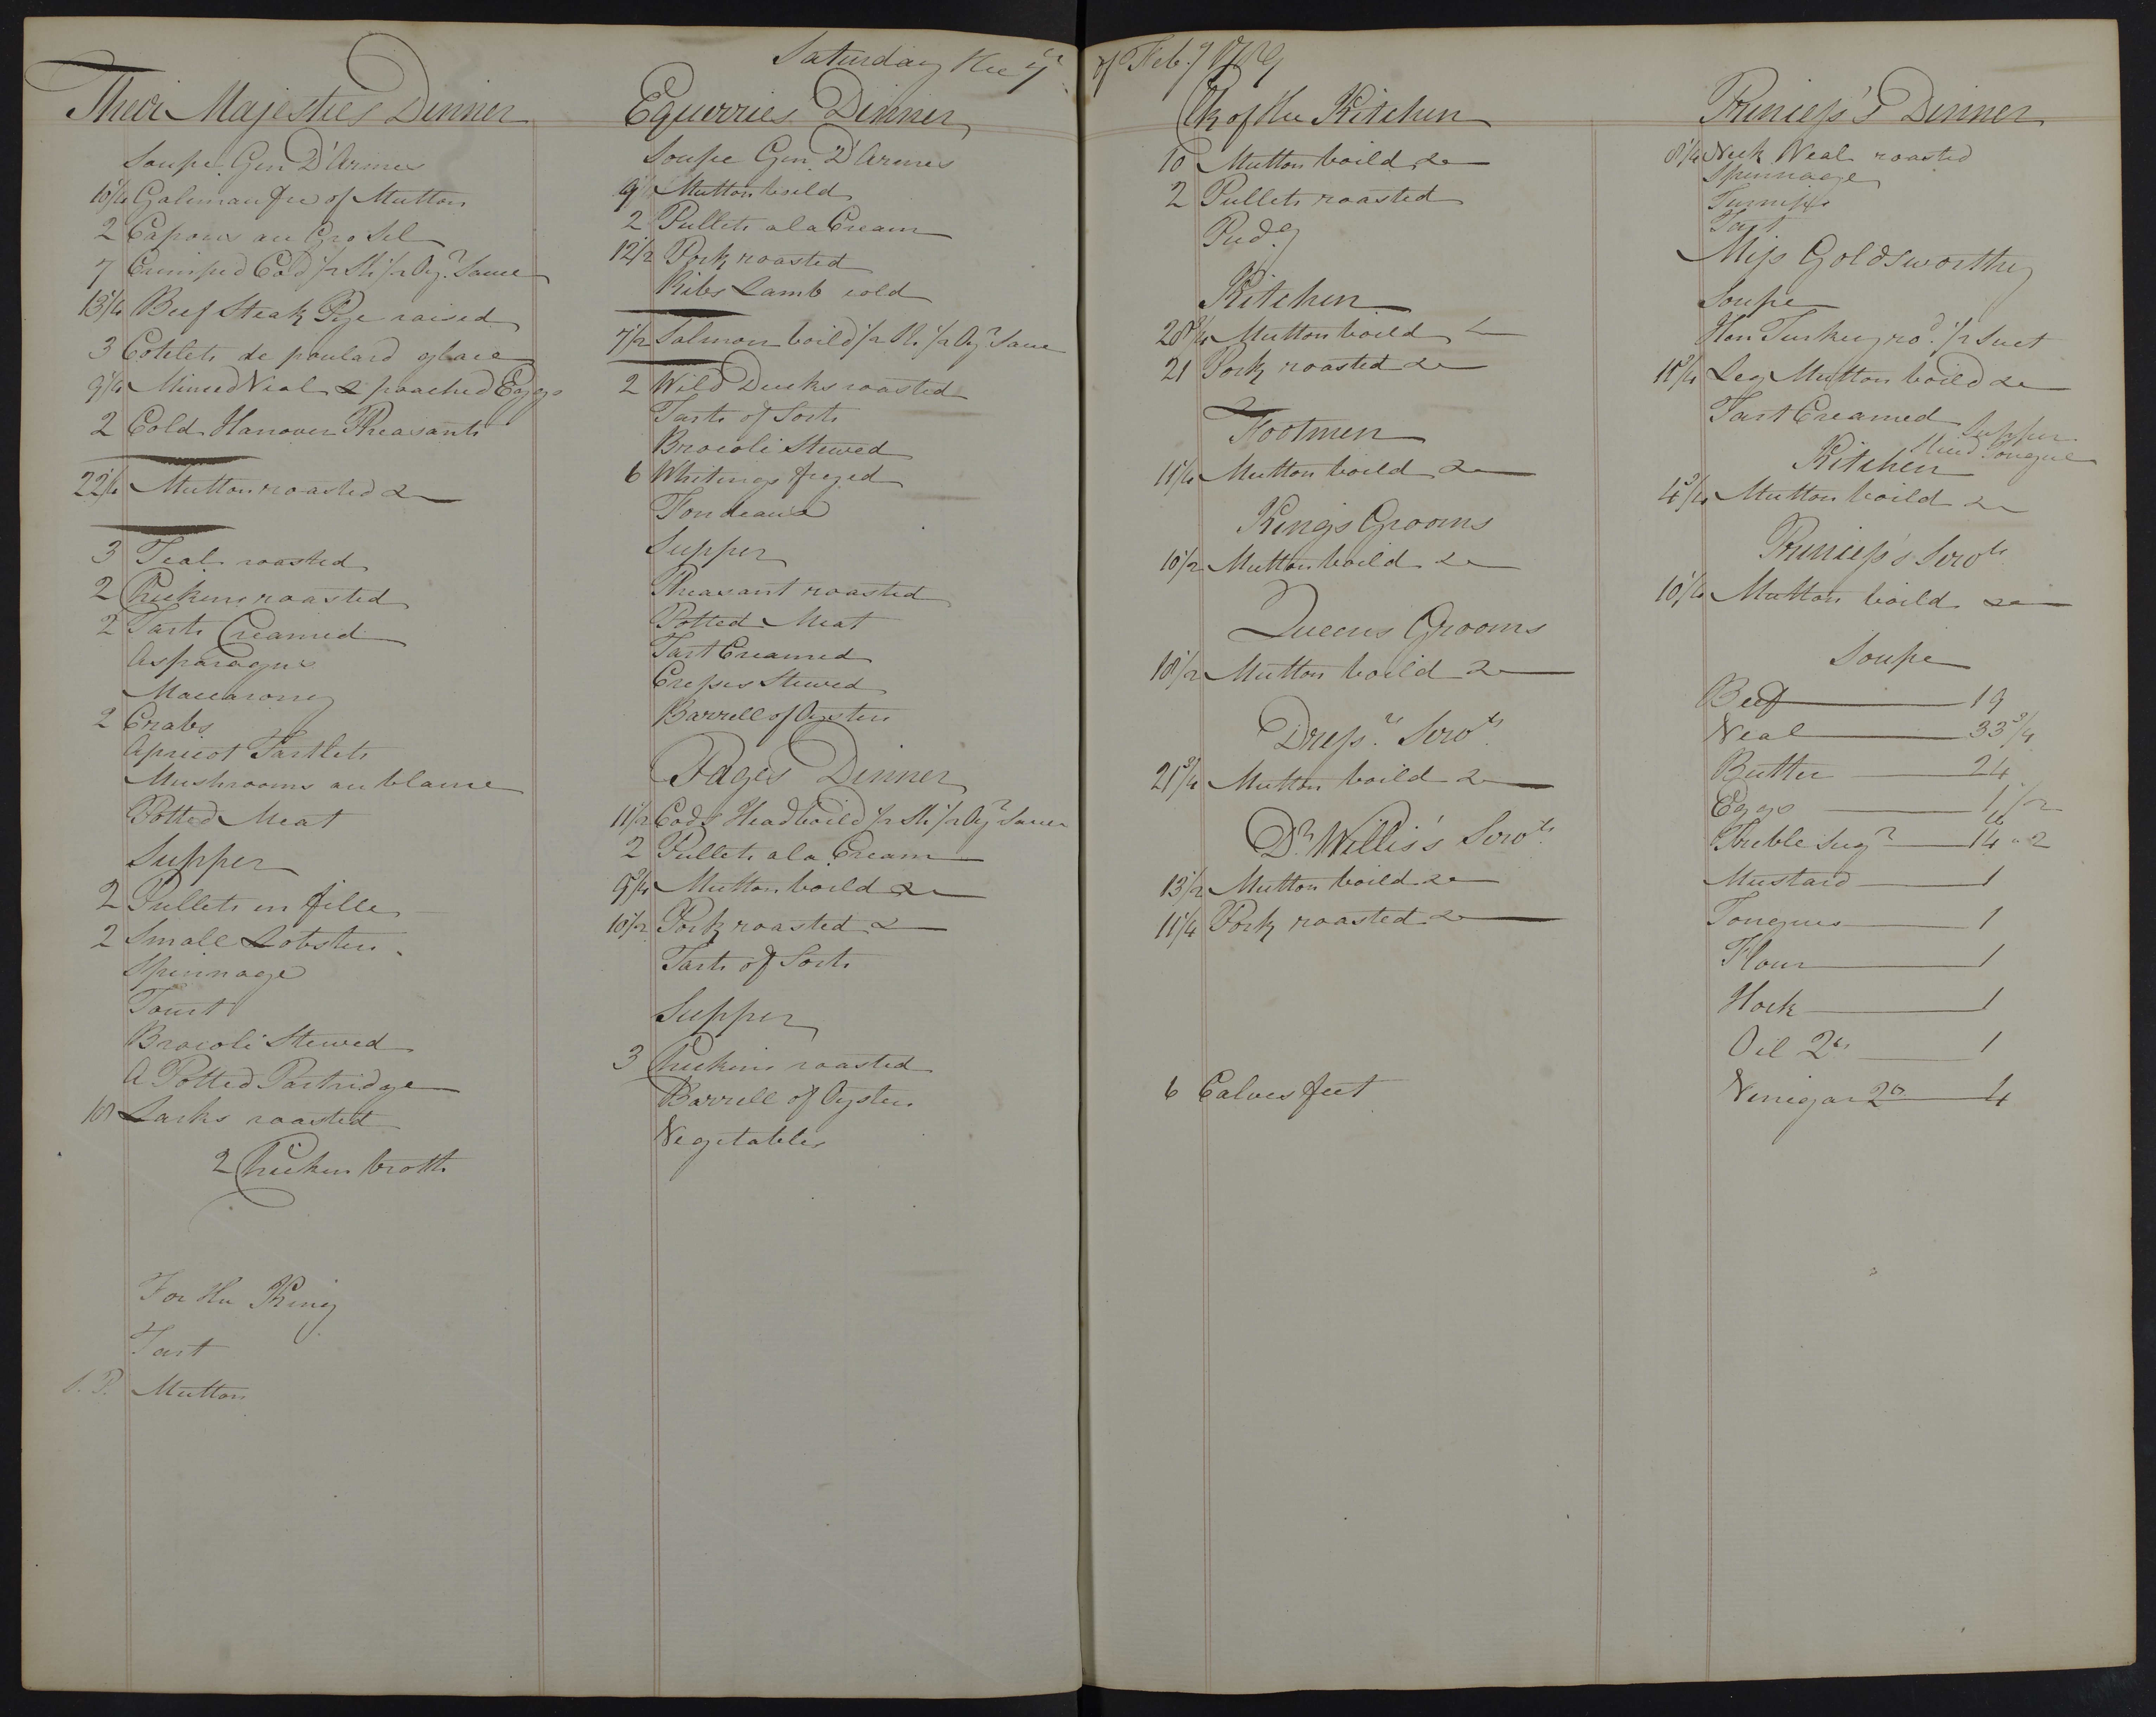 Saturday the 7th of Feb.y 1789
Their Majesties Dinner
Soupe Gen D'Armes
10 1/4 Galimaufre of Mutton
2 Capons au Gro Sel
7 Crimped Cod 1/2 Sh 1/2 Oy.r Sauce
13 1/4 Beef Steak Pye raised
3 Cotelets de poulard glace
9 1/4 Minced Veal & poached Eggs
2 Cold Hanover Pheasants
22 1/4 Mutton roasted &
3 Teal roasted
2 Chickens roasted
2 Tarts Creamed
Asparagus
Maccarony
2 Crabs
Apricot Tartlets
Mushrooms au blanc
Potted Meat
Supper
2 Pullets en fille
2 Small Lobsters
Spinnage
Tourt
Brocoli Stewed
A Potted Partridge
18 Larks roasted
2 Chicken broth
For the King
Tart
Mutton
Equerries Dinner
Soupe Gen D'Armes
9 Mutton boild
2 Pullets a la Cream
12 1/2 Pork roasted
Ribs Lamb cold
7 1/2 Salmon boild 1/2 Sh 1/2 Oy.r Sauce
2 Wild Ducks roasted
Tarts of Sorts
Brocoli Stewed
6 Whitings fryed
Fondeaux
Supper
Pheasant roasted
Potted Meat
Tart Creamed
Cresses Stewed
Barrell of Oysters
Pages Dinner
11 1/2 Cods Head boild 1/2 Sh 1/2 Oy.r Sauce
2 Pullets a la Cream
9 3/4 Mutton boild &
10 1/2 Pork roasted &
Tarts of Sorts
Supper
3 Chickens roasted
Barrell of Oysters
Vegetables
Clk of the Kitchen
10 Mutton boild &
2 Pullets roasted
Pud.g
Kitchen
20 3/4 Mutton boild &
21 Pork roasted &
Footmen
11 1/4 Mutton boild &
Kings Grooms
10 1/2 Mutton boild &
Queens Grooms
10 1/2 Mutton boild &
Dress.rs Serv.ts
21 3/4 Mutton boild &
D.r Willis's Serv.ts
13 1/2 Mutton boild &
11 1/4 Pork roasted &
6 Calves feet
Princess's Dinner
8 1/4 Neck Veal roasted
Spinnage
Turnips
Tart
Miss Goldsworthy
Soupe
Hen Turkey ro.d 1/2 Suet
Leg Mutton boild &
Tart Creamed
Supper
Tongue
Kitchen
4 3/4 Mutton boild &
Princess's Serv.ts
10 1/4 Mutton boild &
Soupe
Beef 19
Veal 33 3/4
Butter 24
Eggs 1 1/2
Treble Sug.r 14 " 2
Mustard 1
Tongues 1
Flour 1
Hock 1
Oil 2ds 1
Vinigar 2ds 4